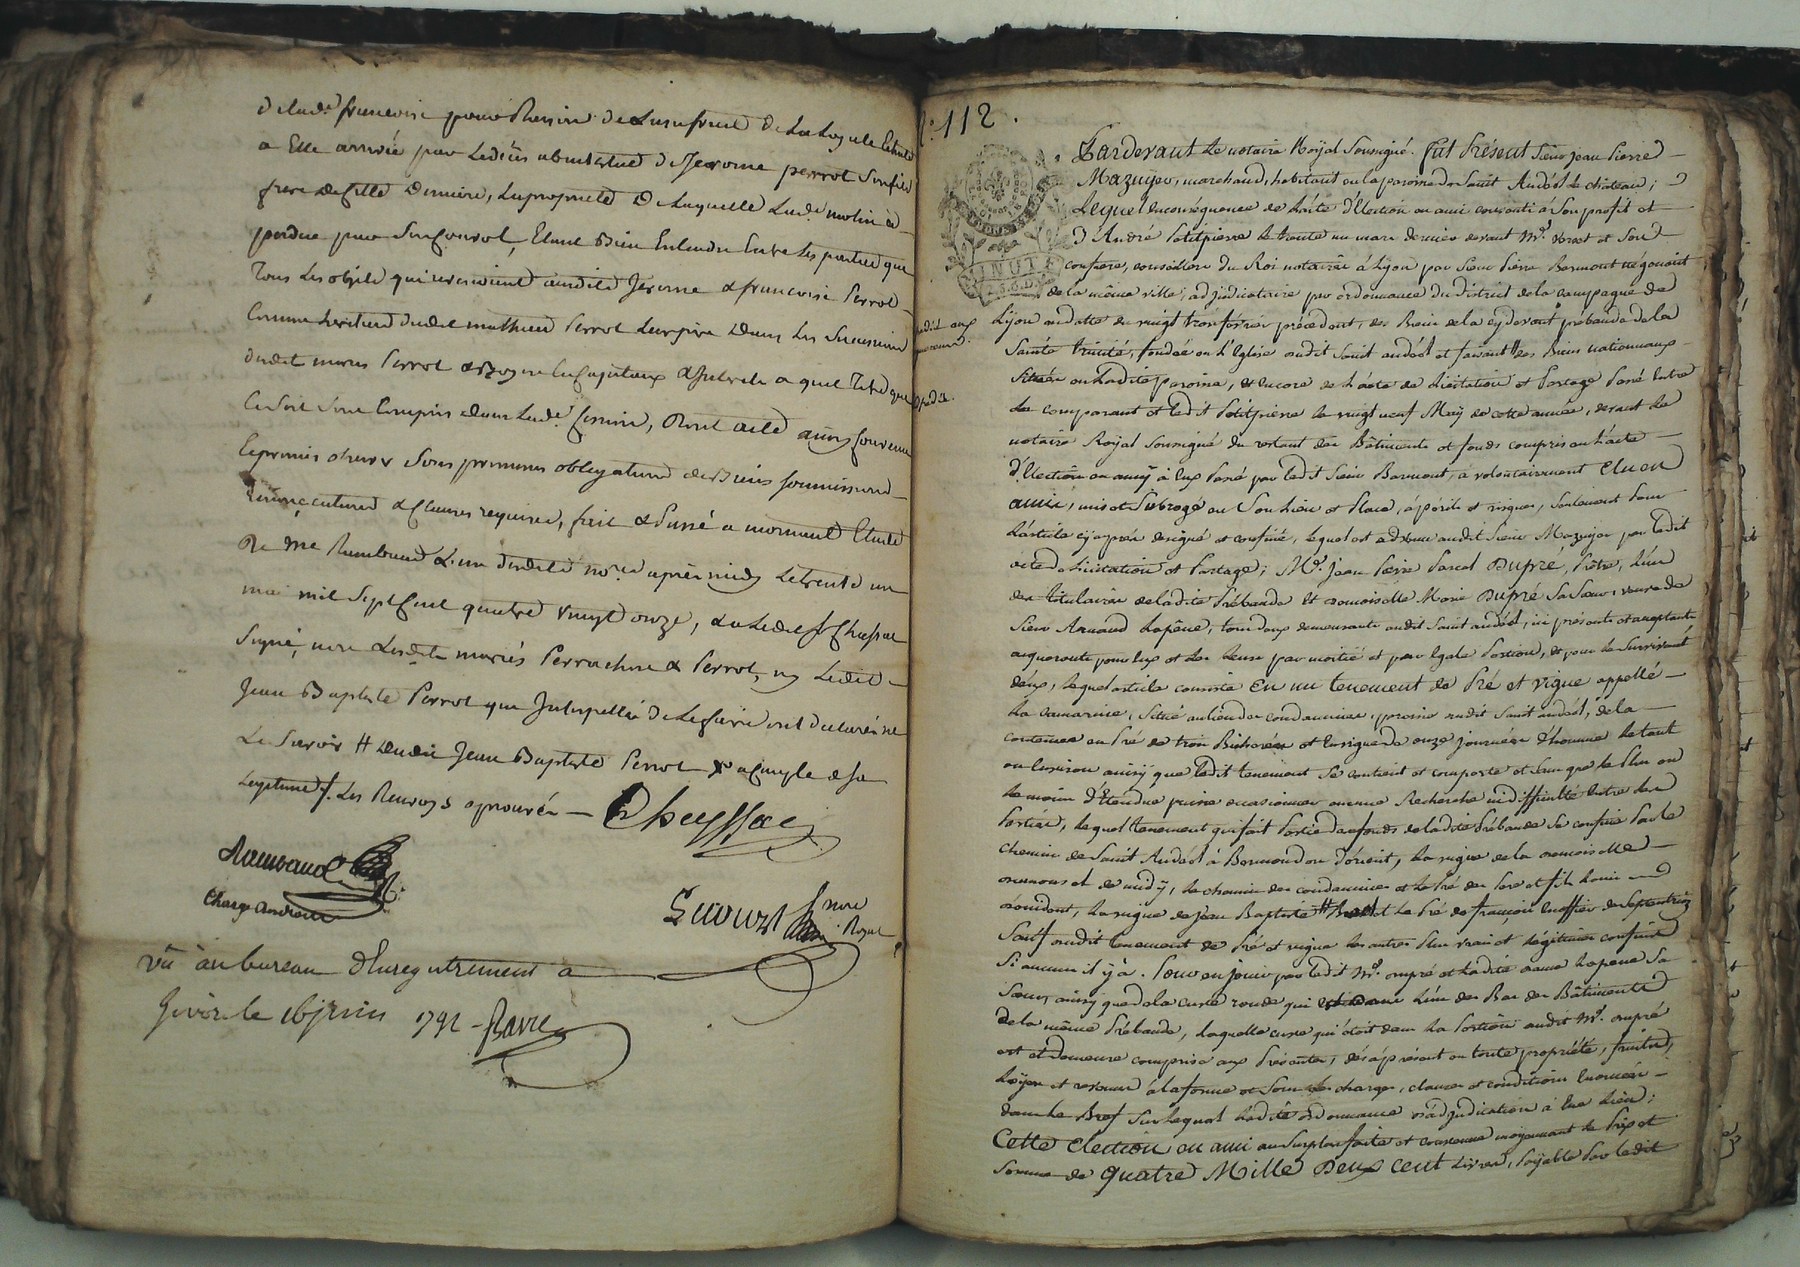 De lad.e francoise pour Raison de Lusufruit de La Legitime
a Elle arrivée par Le deces abintestat de Jerome perrot Son fils
frere de Cette Derniere, La propriete De Laquelle Lad.e
perdue par Son Convol, Etant Bien Entendu Entre Les parties que
Tous Les objets qui revenoient auxdits Jerome & francoise Perrot
Comme heritiers dudit mathieu Perrot Leur pere Dans Les Successions
dudit Perrot Capitaux & Interets a quel Titre que
Ce Soit Sont Compris dans Lad.e Cession, Dont acte ainsy Convenu
Sous promesses obligations de Biens Soumissions
Renonciations & Clauses requises, fait & Passé a mornant Etude
De me Rambaud L'un desdits no.res après midy Le trente un
mai mil Sept Cent quatre vingt onze, & a Ledit Sr Chuffae
Signé, non Lesdits mariés Perrachon & Perrot, ny Ledit
Jean Baptiste Perrot que Interpellés De Le faire ont declaré ne
Le Savoir # dudit Jean Baptiste Perrot & de Sa
Legitime /. Les Renvoys aprouvés
Rambaud
vû au bureau d'Enregistrement a
Givors le 16 juin 1791 - Ravre
N.o 112.
MINUTE
Pardevant Le notaire Royal Soussigné. fut Présent Sieur Jean Pierre
Mazuyer, marchand, habitant en la paroisse de Saint Andéol Le château;
Lequel en conséquence de L'acte d'Election en ami consenti à Son profit et
D'André Petitpierre Le trente un mars dernier devant Mr. et Son
confrere, conseillers du Roi notaires à Lyon par Sieur Pierre Bermont négociant
de la même ville, adjudicataire par ordonnance du District de la campagne de
Lyon en datte du vingt trois février précédent, des Biens de la cy devant prébende de la
Sainte trinité, fondée en L'Eglise dudit Saint andéol et faisant # des Biens nationnaux
Située en Ladite paroisse, et encore de L'acte de Licitation et Partage Passé Entre
Le comparant et Ledit Petitpierre Le vingt neuf May de cette année, devant Le
notaire Royal Soussigné du restant des Bâtiments et fonds compris en L'acte
d'Election en amy à Eux Passé par Ledit Sieur Bermont, a volontairement Elu en
ami, mis et Subrogé en Son Lieu et Place, à périls et risques, Seulement Pour
L'article cy après designé et confiné, Lequel est advenu audit Sieur Mazuyer par Ledit
acte de Licitation et Partage; Mr. Jean Pierre Pascal Dupré, Prêtre, L'un
des titulaires de Ladite Prébende Et demoiselle Marie Dupré Sa Sœur, veuve de
Sieur Arnaud Lapeue, tous deux demeurants audit Saint andéol, ici présents et acceptants
acquereurs pour Eux et Les Leurs par moitié et par Egale Portion, et pour Le Survivant
d'eux, Lequel article consiste En un tenement de Pré et vigne appellé
La camarine, Situé au Lieu des condamines, paroisse audit Saint andéol, de la
contenue en Pré de trois Bicherées et En vigne de onze journées d'homme Le tout
ou Environ ainsy que Ledit tenement Se contient et comporte et Sans que Le Plus ou
Le moins d'Etendue puisse occasionner aucune Recherche ni difficulté Entre Les
Parties, Lequel tenement qui fait Partie des fonds de Ladite Prébende Se confine Par Le
chemin de Saint Andéol à d'orient, La vigne de la demoiselle
et de midy, Le chemin des condamines et Le Pré des Pere et fils
d'occident, La vigne de Jean Baptiste # Et Le Pré de françois de Septentrion
Sauf audit tenement de Pré et vigne Les autres Plus vrais et Légitimes confins
Si aucun il y à. Pour en jouir par Ledit Mr. Dupré et Ladite dame Lapeue Sa
Sœur, ainsy que de la cuve ronde qui Est dans L'un des Bas des Bâtiments
de la même Prébende, Laquelle cuve qui étoit dans La Portion audit Mr. Dupré
est et demeure comprise aux Présentes, dès à présent en toute propriété, fruits,
Loyers et revenus à la forme et Sous Les charges, clauses et conditions Enoncées
dans Le Bref Sur Lequel Ladite ordonnance d'adjudication à Eue Lieu;
Cette Election en ami au Surplus faite et convenue moyennant Le Prix et
Somme de quatre Mille Deux cent Livres, Payable Par Ledit